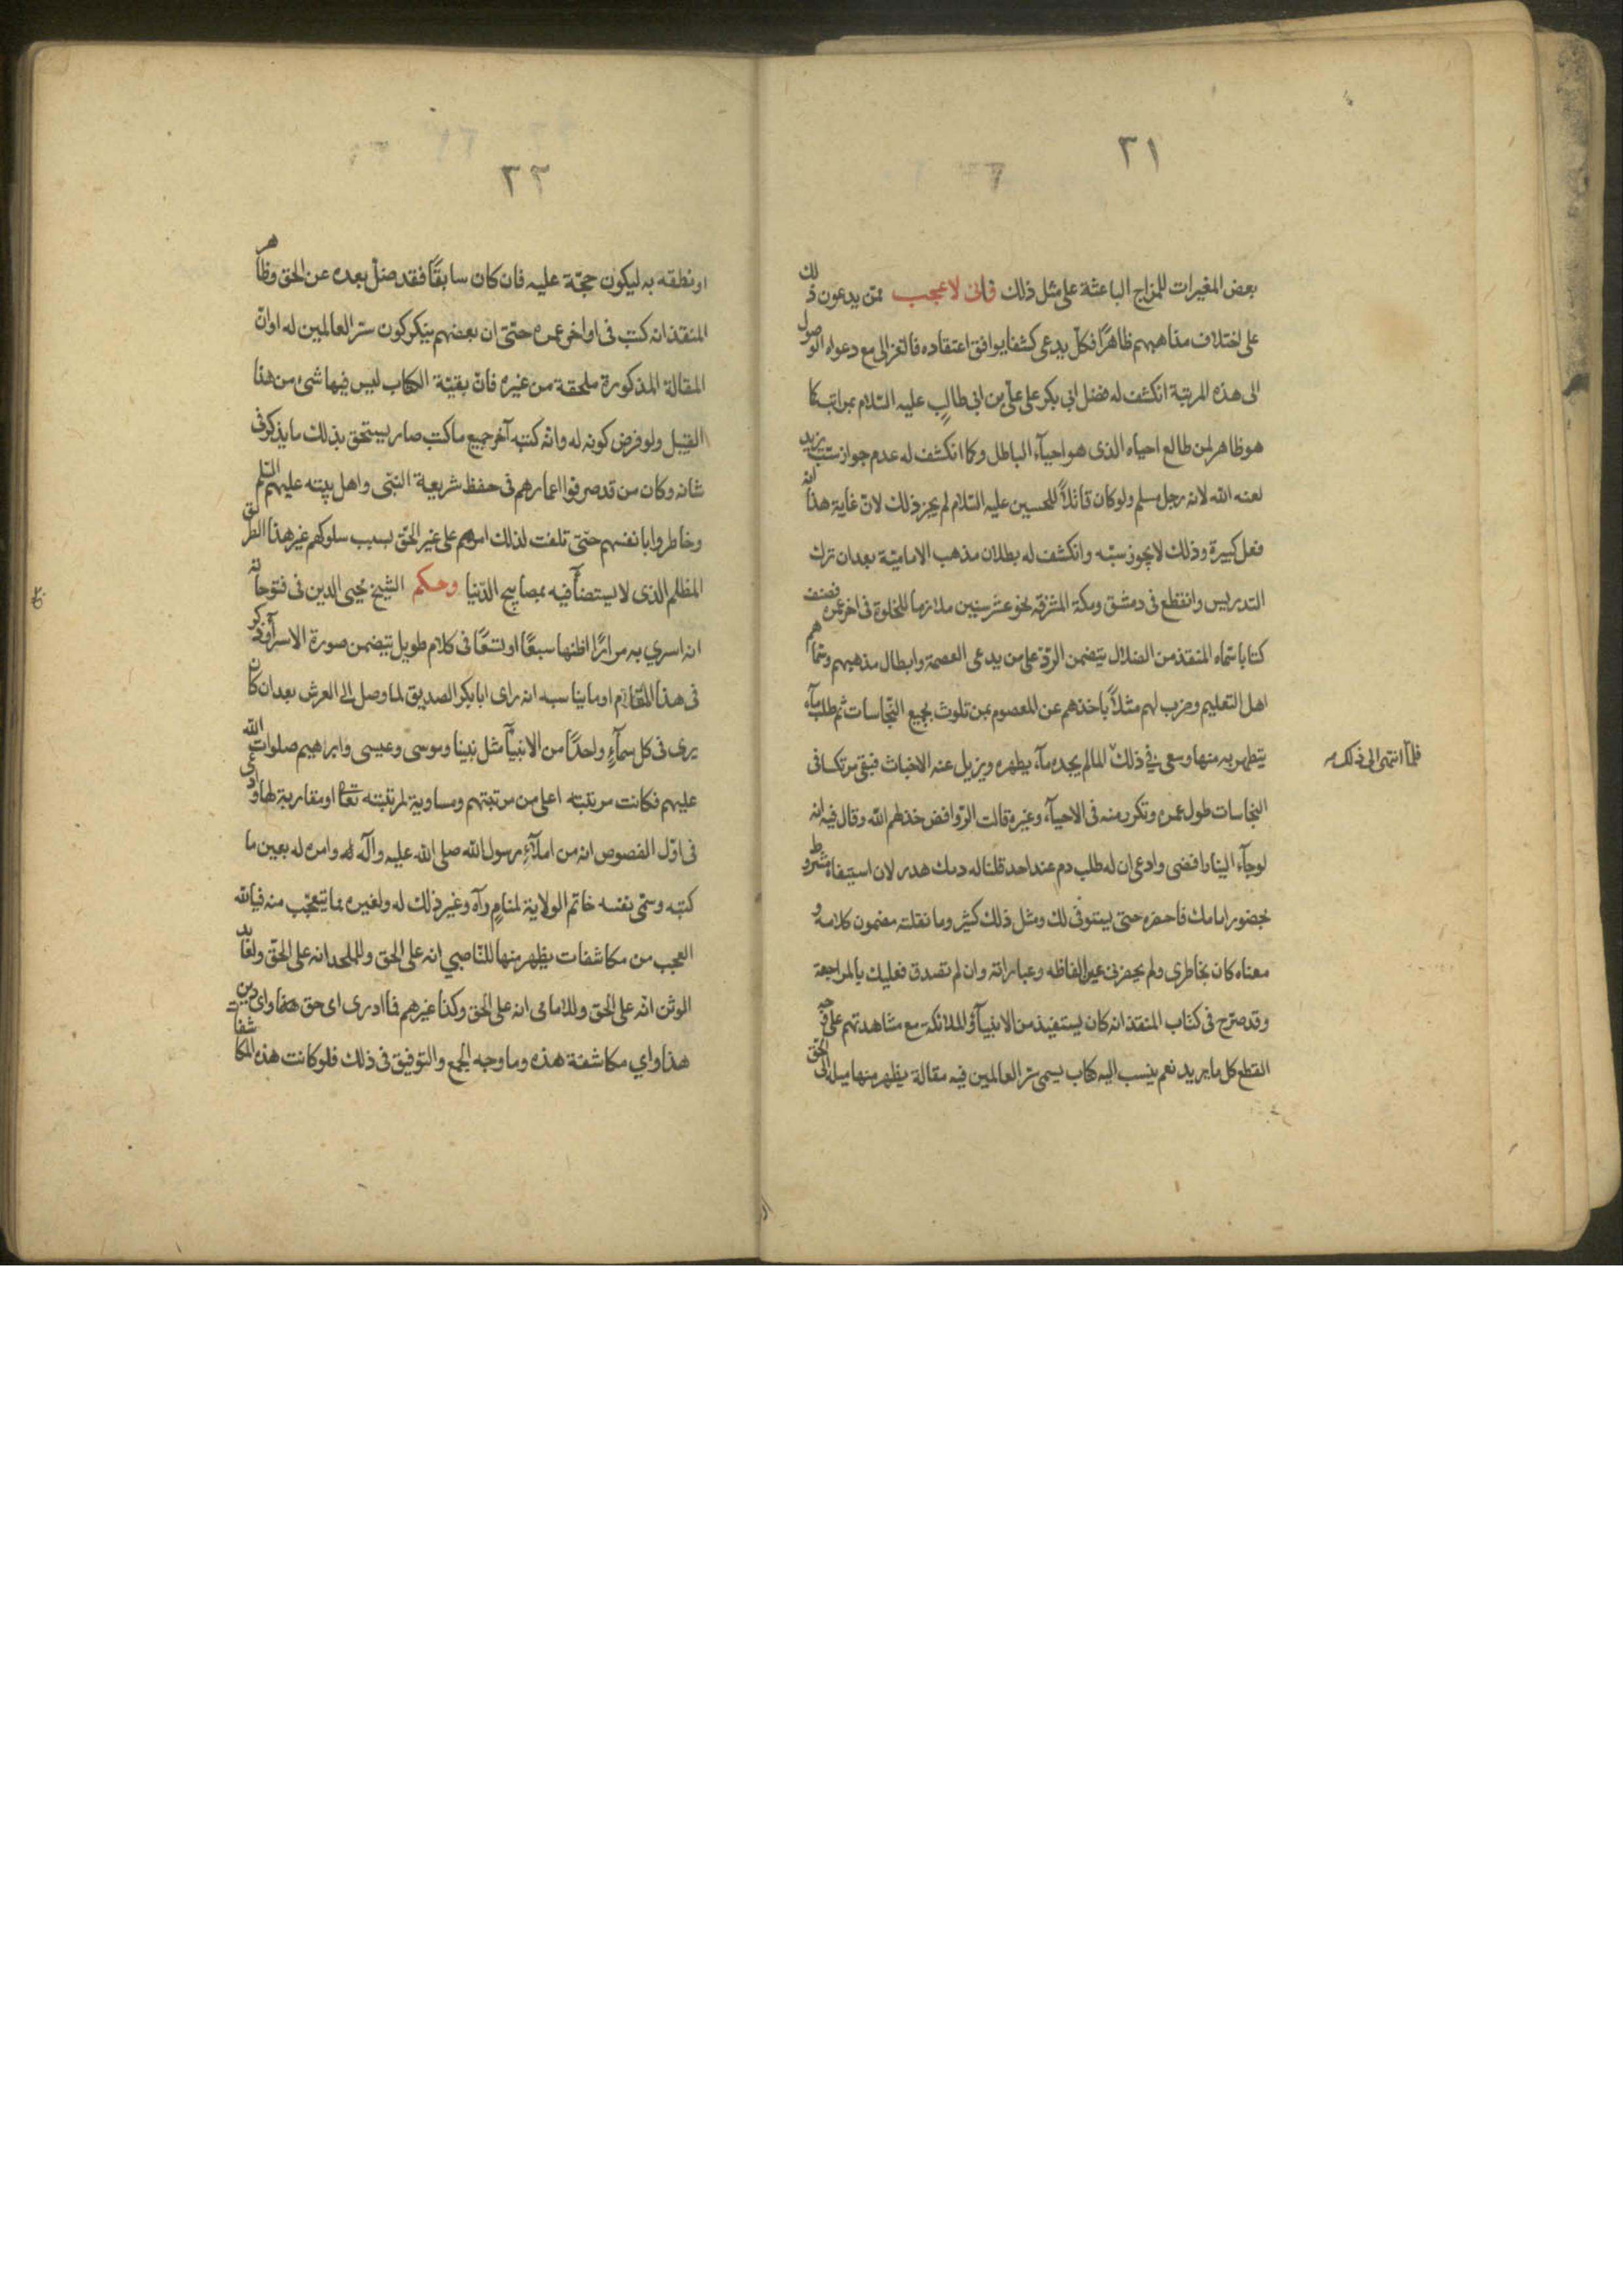 ٣١
بعض المغيرات للمزاج الباعثة على مثل ذلك وانى لاعجب ممن يدعون ذلك
على اختلاف مذاهبهم ظاهرًا فكل يدعى كشفا يوافق اعتقاده فالغزالى مع دعواه الوصول
الى هذه المرتبة انكشف له فضل ابى بكر على على بن ابى طالب عليه السلام بمراتب كما
هو ظاهر لمن طالع احياه الذى هو احياء الباطل وكما انكشف له عدم جواز سب يزيد
لعنه الله لانه رجل مسلم ولو كان قاتلاً للحسين عليه السلام لم يجز ذلك لان غاية هذا انه
فعل كبيرة وذلك لا يجوز سبه وانكشف له بطلان مذهب الامامية بعد ان ترك
التدريس وانقطع فى دمشق ومكة المشرفة نحو عشر سنين ملازما للخلوة فى اخر عمره فصنف
كتابا سماه المنقذ من الضلال يتضمن الرد على من يدعى العصمة وابطال مذهبهم وسماهم
اهل التعليم وضرب لهم مثلاً باخذهم عن المعصوم بمن تلوث بجميع النجاسات ثم طلب ماء
يتطهر به منها وسعى فى ذلك لما لم يجده ماء يطهره ويزيل عنه الاخباث فبقى مرتكسا فى
فلما انتهى الى ذلك
النجاسات طول عمره وتكرر منه فى الاحياء وغيره قالت الروافض خذلهم الله وقال فيه انه
لو جاء الينا رافضى وادعى ان له طلب دم عند احد قلنا له دمك هدر لان استيفاه مشروط
بحضور امامك فاحضره حتى يستوفى لك ومثل ذلك كثير وما نقلته مضمون كلامه و
معناه كان بخاطرى ولم يحضرنى عين الفاظه وعباراته وان لم تصدق فعليك بالمراجعة
وقد صرح فى كتاب المنقذ انه كان يستفيد من الانبياء والملائكة مع مشاهدتهم على وجه
القطع كل ما يريد نعم ينسب اليه كتاب يسمى سر العالمين فيه مقالة يظهر منها ميله الى الحق
٣٢
او نطقه به ليكون حجة عليه فان كان سابقًا فقد ضل بعده عن الحق وظاهر
المنقذ انه كتب فى اواخر عمره حتى ان بعضهم ينكر كون سر العالمين له اوان
المقالة المذكورة ملحقة من غيره فان بقية الكتاب ليس فيها شىء من هذا
القبيل ولو فرض كونه له وانه كتبه آخر جميع ما كتب صار يستحق بذلك ما يذكر فى
شانه وكان من قد صرفوا اعمارهم فى حفظ شريعة النبى واهل بيته عليهم السلم
وخاطروا بانفسهم حتى تلفت لذلك اسوهم على غير الحق بسبب سلوكهم غير هذا الطريق
المظلم الذى لا يستضاء فيه بمصابيح الدنيا وحكم الشيخ محيى الدين فى فتوحاته
انه اسري به مرارًا اظنها سبعًا او تسعًا فى كلام طويل يتضمن صورة الاسراء وذكر
فى هذا المقام او ما يناسبه انه راى ابا بكر الصديق لما وصل الى العرش بعد ان كان
يرى فى كل سماءٍ واحدًا من الانبياء مثل نبينا وموسى وعيسى وابراهيم صلوات الله
عليهم فكانت مرتبته اعلى من مرتبتهم ومساوية لمرتبته تعالى او مقاربة لها وادعى
فى اول الفصوص انه من املاءِ رسول الله صلى الله عليه وآله له وامره له بعين ما
كتبه وسمى نفسه خاتم الولاية لمنامٍ رآه وغير ذلك له ولغيره مما يتعجب منه فيالله
العجب من مكاشفات يظهر منها للناصبي انه على الحق وللملحد انه على الحق ولعابد
الوثن انه على الحق وللامامى انه على الحق وكذا غيرهم فما ادرى اى حق هذا واى دين
هذا واي مكاشفة هذه وما وجه الجمع والتوفيق فى ذلك فلو كانت هذه المكاشفات